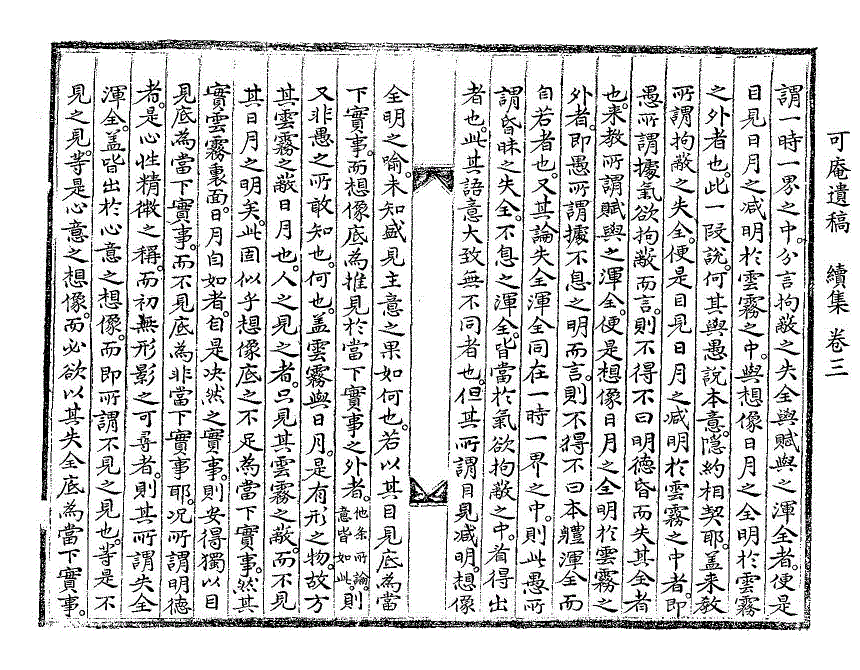 可庵遺稿　續集 卷三
謂一時一界之中。分言拘蔽之失全與賦與之渾全者。便是
目見日月之减明於雲霧之中。與想像日月之全明於雲霧
之外者也。此一段說。何其與愚說本意。隱約相契耶。盖來敎
所謂拘蔽之失全。便是目見日月之减明於雲霧之中者。即
愚所謂據氣欲拘蔽而言。則不得不曰明德昏而失其全者
也。來敎所謂賦與之渾全。便是想像日月之全明於雲霧之
外者。即愚所謂據不息之明而言。則不得不曰本體渾全而
自若者也。又其論失全渾全同在一時一界之中。則此愚所
謂昏昧之失全。不息之渾全。皆當於氣欲拘蔽之中。看得出
者也。此其語意大致無不同者也。但其所謂目見减明。想像
全明之喩。未知盛見主意之果如何也。若以其目見底爲當
下實事。而想像底爲推見於當下實事之外者。他余所論。意皆如此。則
又非愚之所敢知也。何也。盖雲霧與日月。是有形之物。故方
其雲霧之蔽日月也。人之見之者。只見其雲霧之蔽。而不見
其日月之明矣。此固似乎想像底之不足爲當下實事。然其
實雲霧裏面。日月自如者。自是决然之實事。則安得獨以目
見底爲當下實事。而不見底爲非當下實事耶。况所謂明德
者。是心性精微之稱。而初無形影之可尋者。則其所謂失全
渾全。盖皆出於心意之想像。而即所謂不見之見也。等是不
見之見。等是心意之想像。而必欲以其失全底爲當下實事。